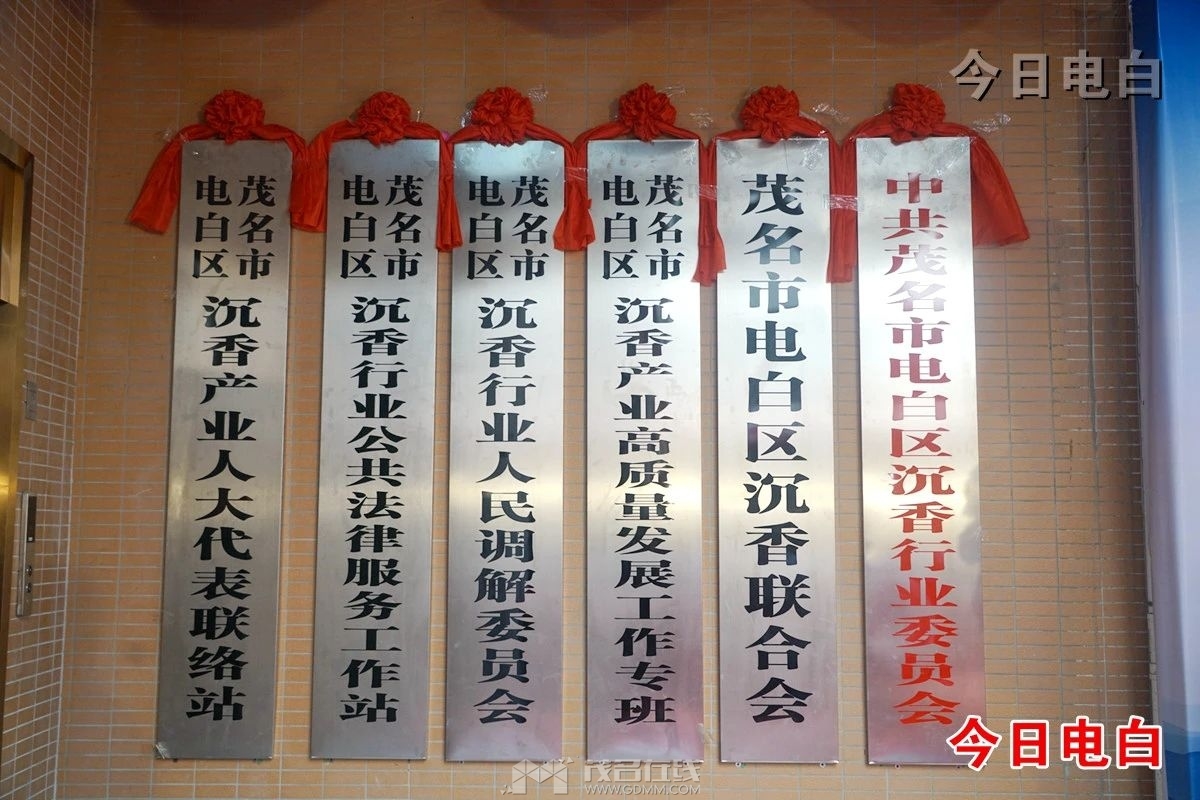 今日电白
茂名市
电白区
沉香产业人大代表联络站
茂名市
电白区
沉香行业公共法律服务工作站
茂名市
电白区
沉香行业人民调解委员会
茂名市
电白区
沉香产业高质量发展工作专班
茂名市电白区沉香联合会
中共茂名市电白区沉香行业委员会
今日电白
茂名在线
WWW.GDMM.COM